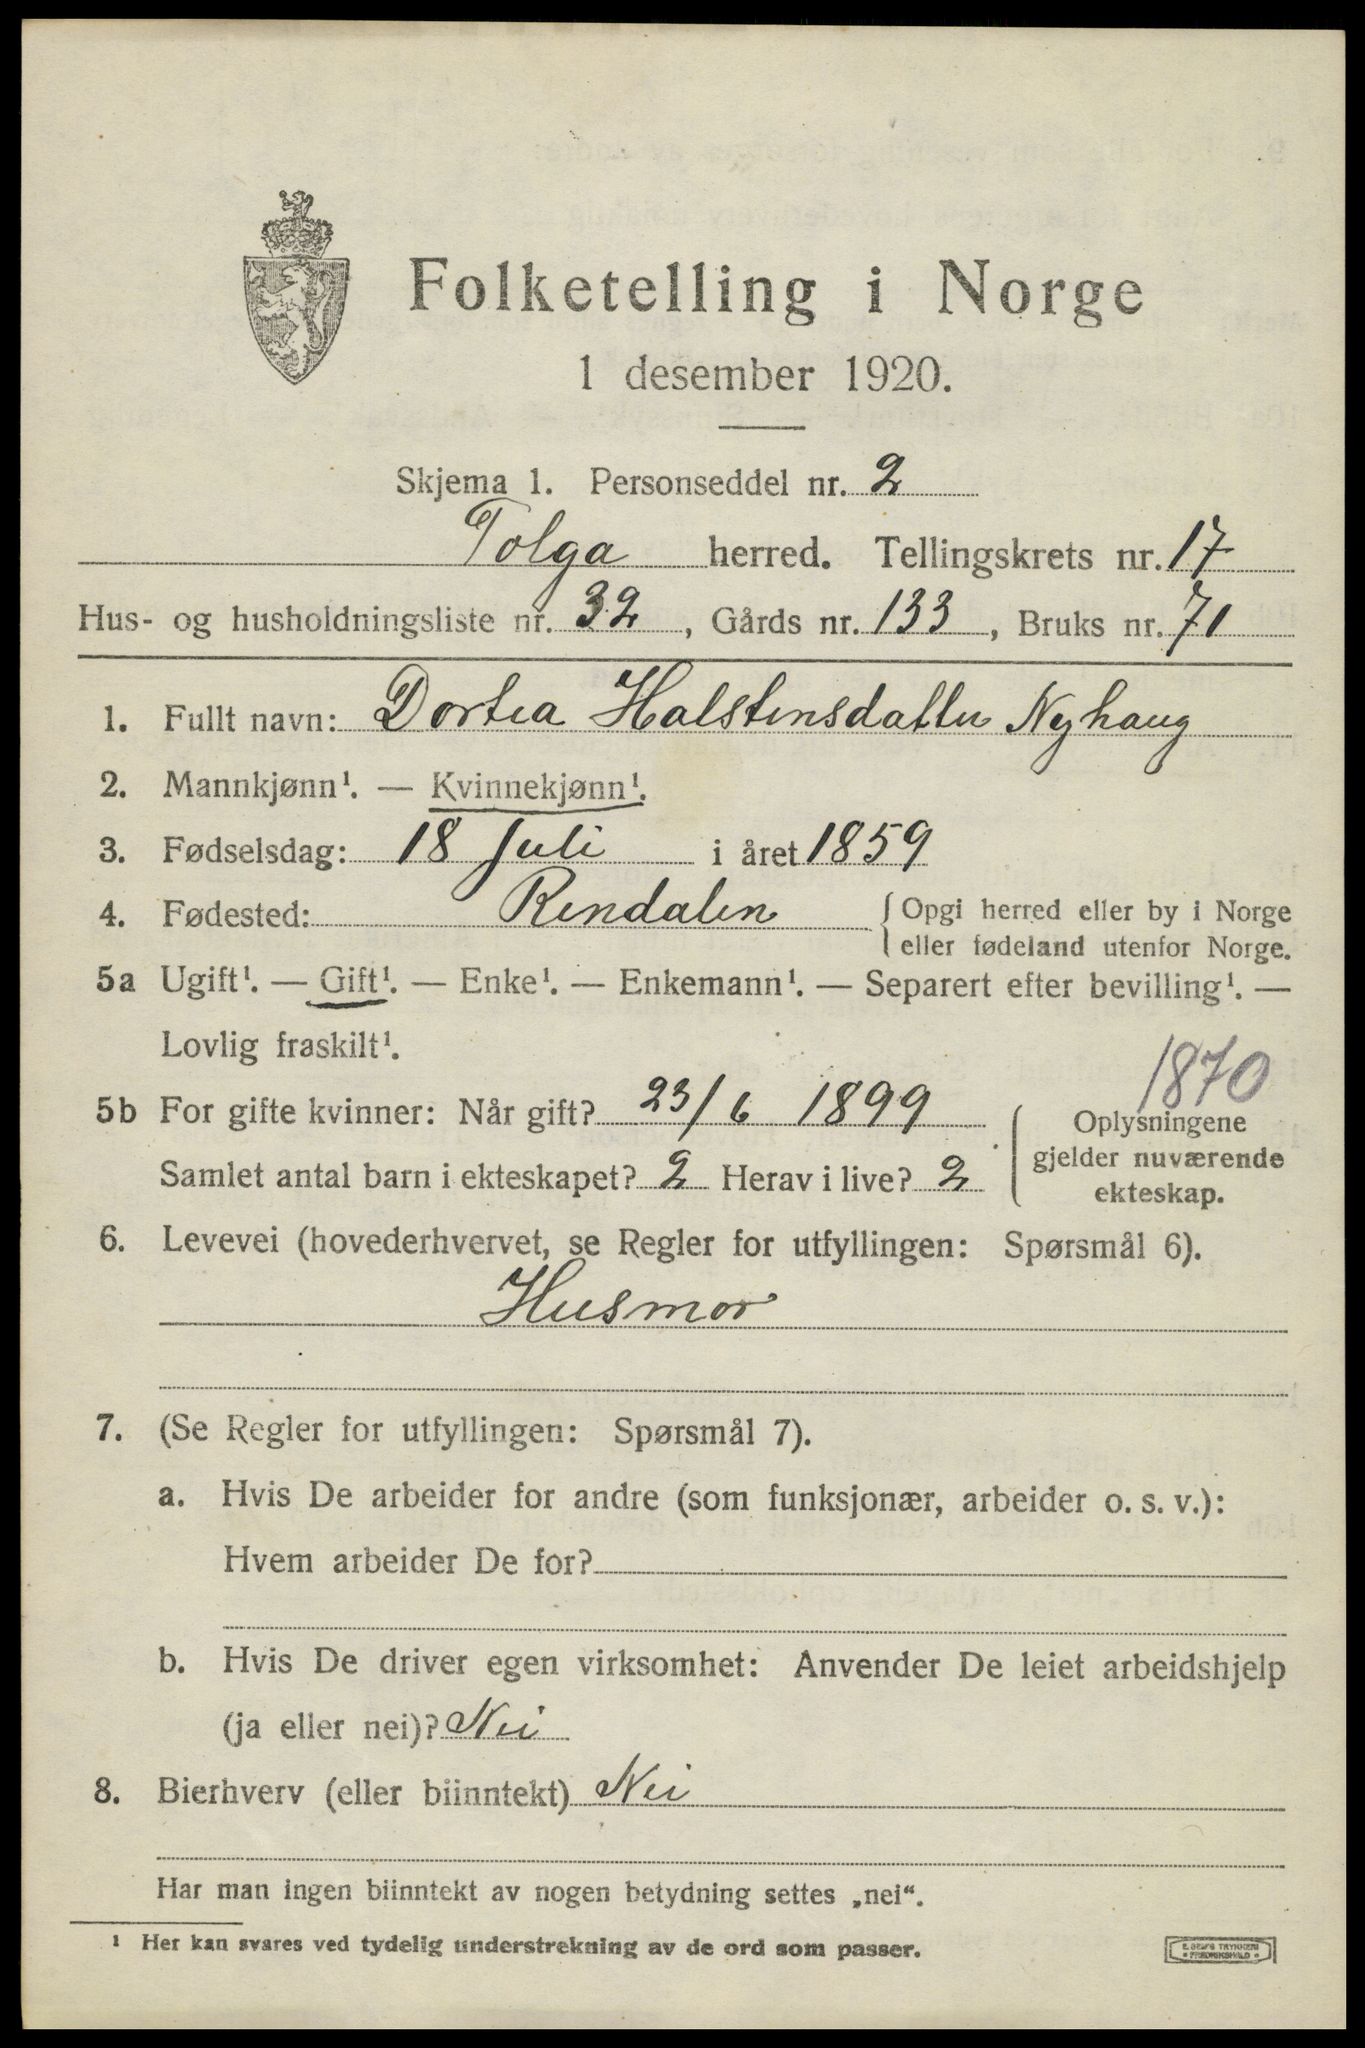 Folketelling i Norge
1 desember 1920.
Skjema 1. Personseddel nr. 2
Tolga herred. Tellingskrets nr. 17
Hus- og husholdningsliste nr. 32, Gårds nr. 133, Bruks nr. 71
1. Fullt navn: Dortea Halstensdatter Nyhaug
2. Mannkjønn¹. — Kvinnekjønn¹.
3. Fødselsdag: 18 Juli i året 1859
4. Fødested: Rendalen { Opgi herred eller by i Norge
eller fødeland utenfor Norge.
5a Ugift¹. — Gift¹. — Enke¹. — Enkemann¹. — Separert efter bevilling¹. —
Lovlig fraskilt¹.
1870
5b For gifte kvinner: Når gift? 23/6 1899
Samlet antal barn i ekteskapet? 2 Herav i live? 2
Oplysningene
gjelder nuværende
ekteskap.
6. Levevei (hovederhvervet, se Regler for utfyllingen: Spørsmål 6).
Husmor
7. (Se Regler for utfyllingen: Spørsmål 7).
a. Hvis De arbeider for andre (som funksjonær, arbeider o. s. v.):
Hvem arbeider De for?
b. Hvis De driver egen virksomhet: Anvender De leiet arbeidshjelp
(ja eller nei)? Nei
8. Bierhverv (eller biinntekt) Nei
Har man ingen biinntekt av nogen betydning settes „nei“.
¹ Her kan svares ved tydelig understrekning av de ord som passer.